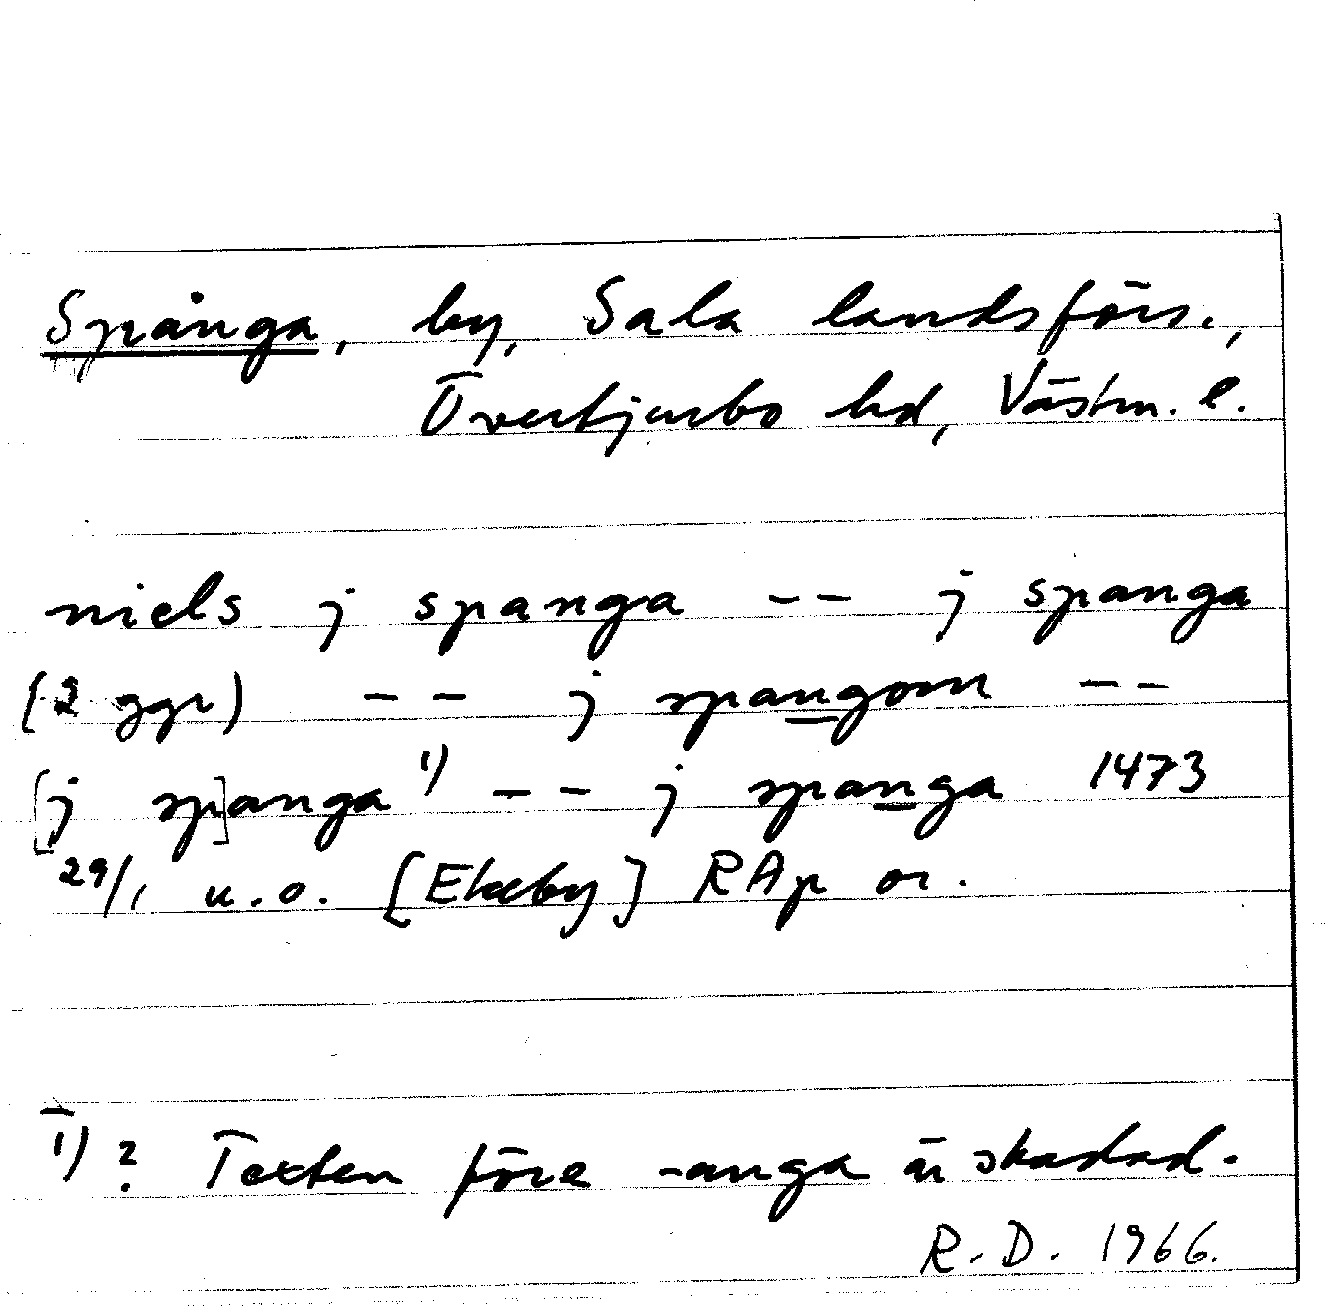 Spånga, by, Sala landsförs.,
Övertjurbo hd, Västm. l.
niels j spanga -- j spanga
(2 ggr) -- j spangom --
[j sp]anga 1) -- j spanga 1473
29/1 u.o. [Ekeby] RAp or.
1) ? Texten före -anga är skadad.
R.D. 1966.